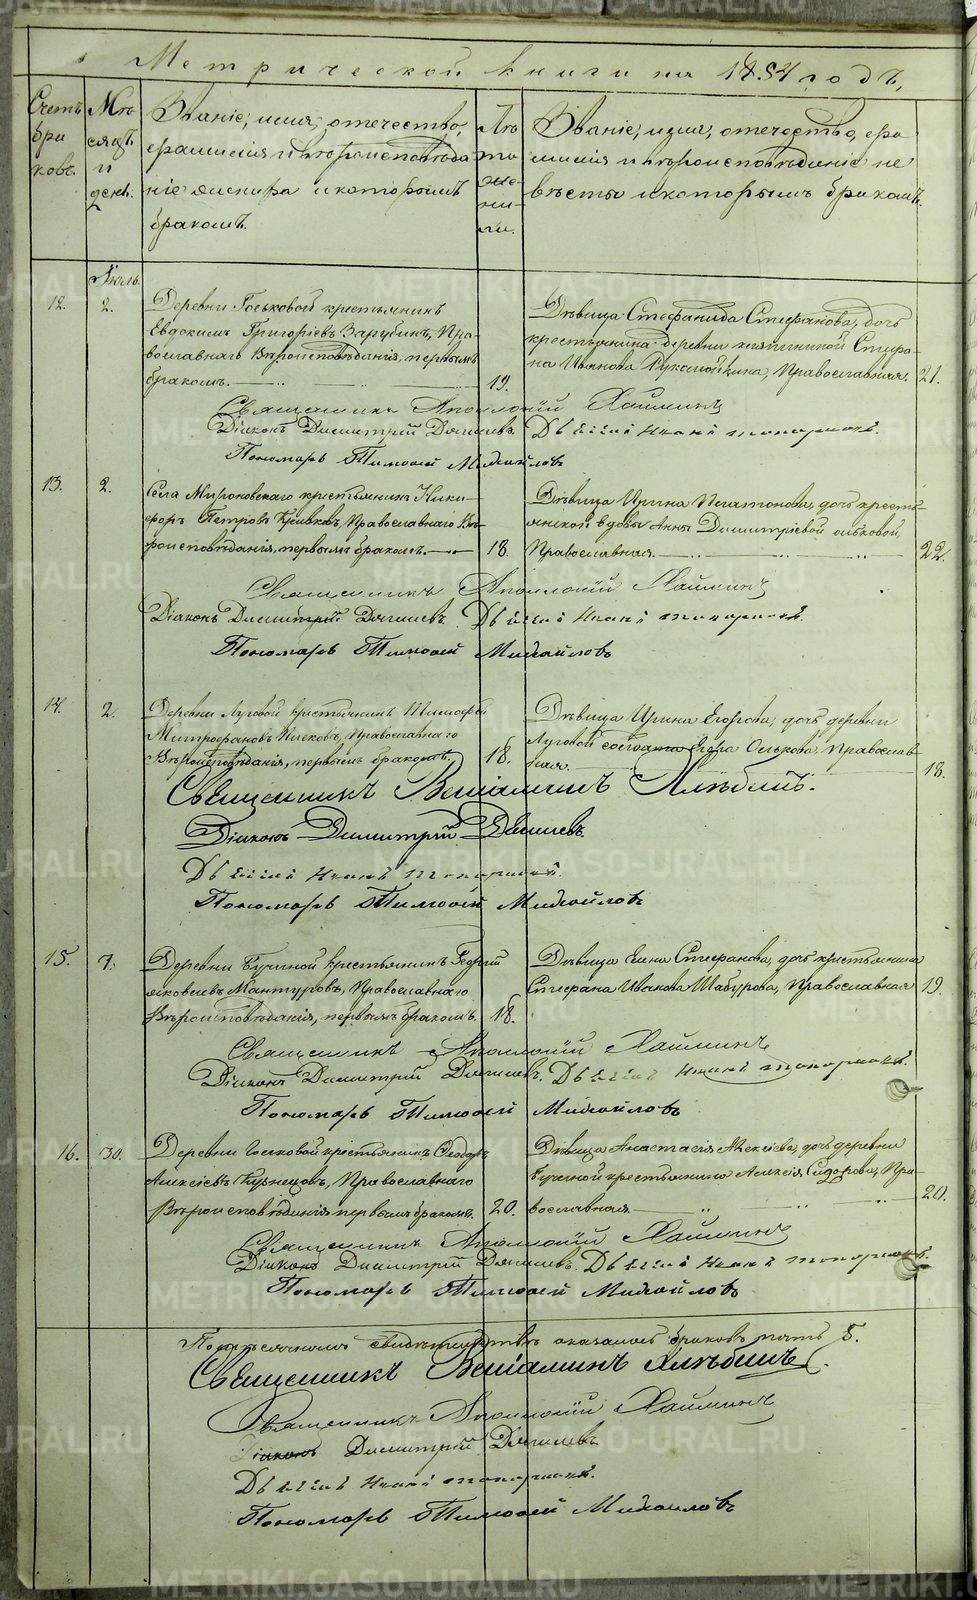 Метрической книги на 1884 годъ,
Счетъ браковъ.
Мѣсяцъ и день.
Званіе, имя, отечество,
фамилія и вѣроисповѣда
ніе жениха и которымъ
бракомъ.
Лѣта жениха.
Званіе, имя, отечество, фа
милія и вѣроисповѣданіе не
вѣсты и которымъ бракомъ.
Іюль.
12.
2.
Деревни Госьковой крестьянинъ
Евдокимъ Григоріевъ Зарубинъ, Пра-
вославнаго Вѣроисповѣданія, первымъ
бракомъ.
19.
Дѣвица Стефанида Стефанова, дочь
крестьянина деревни Стефа-
на Иванова Рукомойкина, Православная.
21.
Священникъ Аполлоній Хайминъ
Діаконъ Димитрій Дягилевъ. Дьячекъ Иванъ Топорковъ.
Пономарь Тимоѳей Михайловъ
13.
2.
Села Мироновскаго крестьянинъ Ники-
форъ Петровъ Православнаго Вѣ-
роисповѣданія, первымъ бракомъ.
18.
Дѣвица Ирина Платонова, дочь кресть-
янской вдовы Анны Димитріевой Ольковой,
Православная.
22.
Священникъ Аполлоній Хайминъ
Діаконъ Димитрій Дягилевъ. Дьячекъ Иванъ Топорковъ.
Пономарь Тимоѳей Михайловъ
14.
2.
Деревни Луговой крестьянинъ Тимофей
Митрофановъ Православнаго
Вѣроисповѣданія, первымъ бракомъ.
18.
Дѣвица Ирина Егорова, дочь деревни
Луговой Егора Олькова, Православ
ная.
18.
Священникъ Веніаминъ Хлѣбинъ.
Діаконъ Димитрій Дягилевъ.
Дьячекъ Иванъ Топорковъ.
Пономарь Тимоѳей Михайловъ
15.
7.
Деревни Бучиной крестьянинъ Георгій
Яковлевъ Мантуровъ, Православнаго
Вѣроисповѣданія, первымъ бракомъ.
18.
Дѣвица Елена Стефанова, дочь крестьянина
Стефана Иванова Шабурова, Православная
19.
Священникъ Аполлоній Хайминъ
Діаконъ Димитрій Дягилевъ. Дьячекъ Иванъ Топорковъ.
Пономарь Тимоѳей Михайловъ
16.
30.
Деревни Госьковой крестьянинъ Ѳеодоръ
Алексіевъ Кузнецовъ, Православнаго
Вѣроисповѣданія первымъ бракомъ.
20.
Дѣвица Анастасія Алексіева, дочь деревни
Бучиной крестьянина Алексія Сидорова, Пра-
вославная
20.
Священникъ Аполлоній Хайминъ
Діаконъ Димитрій Дягилевъ. Дьячекъ Иванъ Топорковъ.
Пономарь Тимоѳей Михайловъ
По мѣсячномъ свидѣтельствѣ оказалось браковъ пять 5.
Священникъ Веніаминъ Хлѣбинъ.
Священникъ Аполлоній Хайминъ
Діаконъ Димитрій Дягилевъ
Дьячекъ Иванъ Топорковъ.
Пономарь Тимоѳей Михайловъ
METRIKI.GASO-URAL.RU